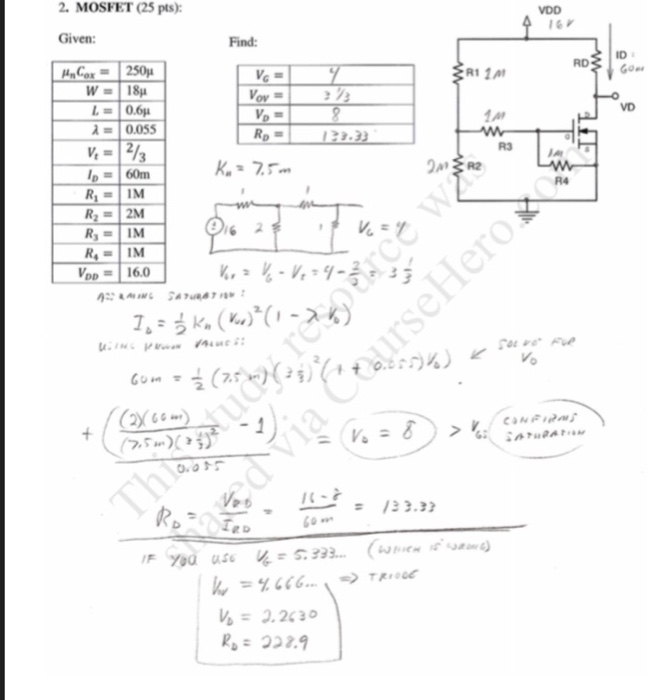 2. MOSFET (25 pts):
Given:
Find:
μnCox = 250μ
W = 18μ
L = 0.6μ
λ = 0.055
Vt = 2/3
ID = 60m
R1 = 1M
R2 = 2M
R3 = 1M
R4 = 1M
VDD = 16.0
VG = 4
VOV = 3 1/3
VD = 8
RD = 133.33
VDD
16V
R1 1M
RD
ID:
60m
VD
1M
R3
2M R2
1M
R4
D
G
S
Kn = 7.5m
1 1
16 2 1 VG = 4
Vov = VG - Vt = 4 - 2/3 = 3 1/3
ASSUMING SATURATION:
ID = 1/2 Kn (Vov)² (1 - λ VD)
USING KNOWN VALUES:
60m = 1/2 (7.5m)(3 1/3)² (1 + 0.055)VD) ↙ SOLVE FOR VD
+ ( (2)(60m) / (7.5m)(3 1/3)² - 1 ) / 0.055 = VD = 8 > VG; CONFIRMS SATURATION
RD = VRD / IRD = 16-8 / 60m = 133.33
IF YOU USE VG = 5.333... (WHICH IS WRONG)
Vov = 4.666... ⇒ TRIODE
VD = 2.2630
RD = 228.9
This study resource was
shared via CourseHero.com